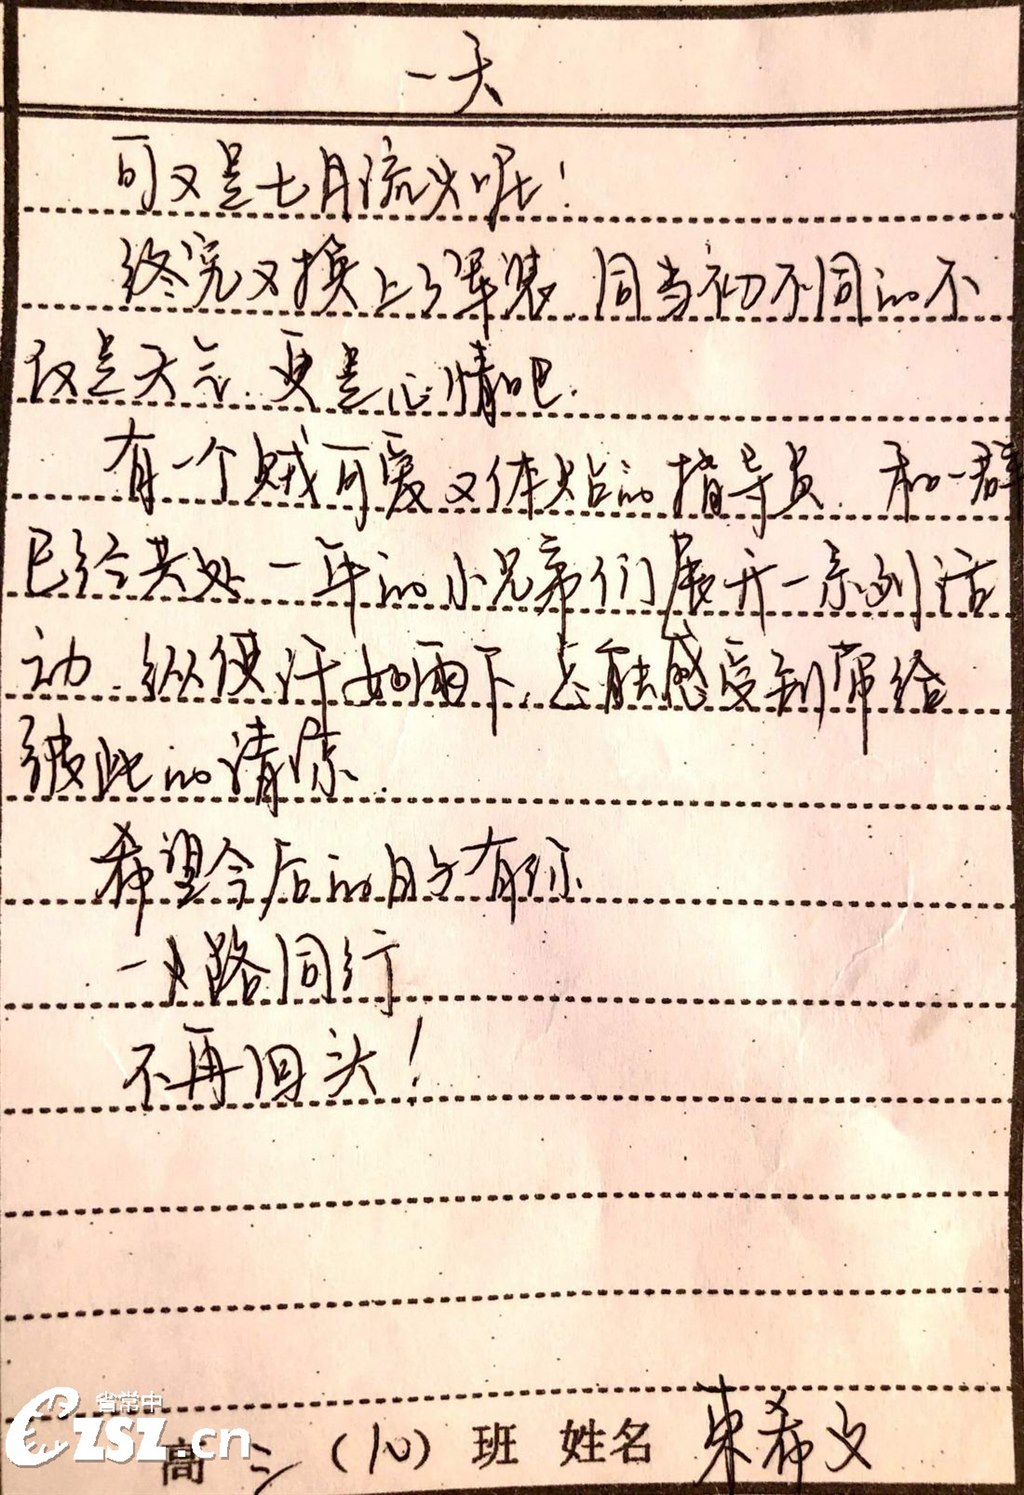 一天
可又是七月流火呢！
终究又换上了军装.同当初不同的不
仅是天气.更是心情吧.
有一个贼可爱又体贴的指导员.和一群
已经共处一年的小兄弟们展开一系列活
动.纵使汗如雨下.总能感受到带给
彼此的清凉.
希望今后的日子有你
一路同行
不再回头！
省常中
CZSZ.cn
高二(10)班 姓名 束希文